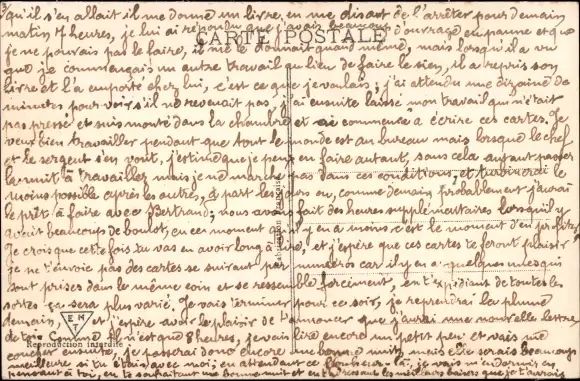 3/
qu'il s'en allait il me donne un livre, en me disant de l'arrêter pour demain
matin 7 heures, je lui ai répondu que j'avais beaucoup d'ouvrage en panne et que
CARTE POSTALE
je ne pouvais pas le faire, il me le donnait quand même, mais lorsqu'il a vu
que je commençais un autre travail au lieu de faire le sien, il a repris son
livre et l'a emporté chez lui, c'est ce que je voulais; j'ai attendu une dizaine de
minutes pour voir s'il ne revenait pas, j'ai ensuite laissé mon travail qui n'était
pas pressé et suis monté dans la chambre et ai commencé à écrire ces cartes. Je
veux bien travailler pendant que tout le monde est au bureau mais lorsque le chef
et le sergent s'en vont, j'estime que je peux en faire autant, sans cela autant passer
la nuit à travailler mais je ne marche pas dans ces conditions, et
moins possible après les autres, à part les jours où, comme demain probablement j'aurai
le prêt à faire avec Bertrand; nous avons fait des heures supplémentaires lorsqu'il y
avait beaucoup de boulot, en ce moment car il y en a moins c'est le moment d'en profiter.
Je crois que cette fois tu vas en avoir long à lire, et j'espère que ces cartes te feront plaisir
je ne t'envoie pas des cartes se suivant par numéros car il y en a quelques unes qui
sont prises dans le même coin et se ressemblent forcément, en t'expédiant de toutes les
sortes ça sera plus varié. Je vais terminer pour ce soir, je reprendrai la plume
demain, et j'espère avoir le plaisir de t'annoncer que j'aurai une nouvelle lettre
ENT
de toi. Comme il n'est que 8 heures, je vais lire encore un petit peu et vais me
Reproduction interdite
coucher ensuite, je passerai donc encore une bonne nuit, mais elle serait beaucoup
meilleure si tu étais avec moi; en attendant ce bonheur là, je vais m'endormir en
pensant à toi, en te souhaitant une bonne nuit et en te les meilleurs baisers que je t'aurais